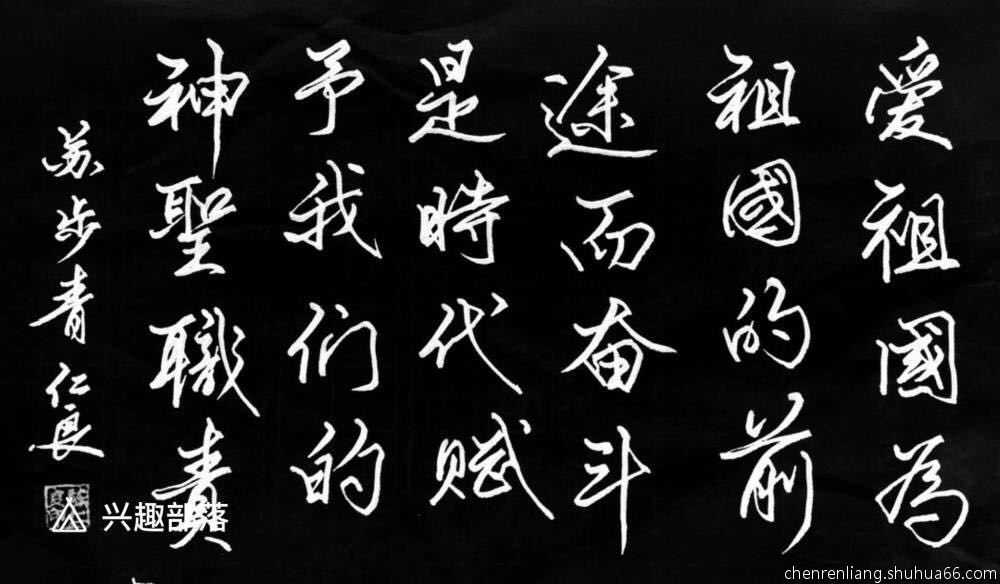 爱祖國為
祖國的前
途而奋斗
是時代赋
予我们的
神聖職责
苏步青 仁良
兴趣部落
chenrenliang.shuhua66.com